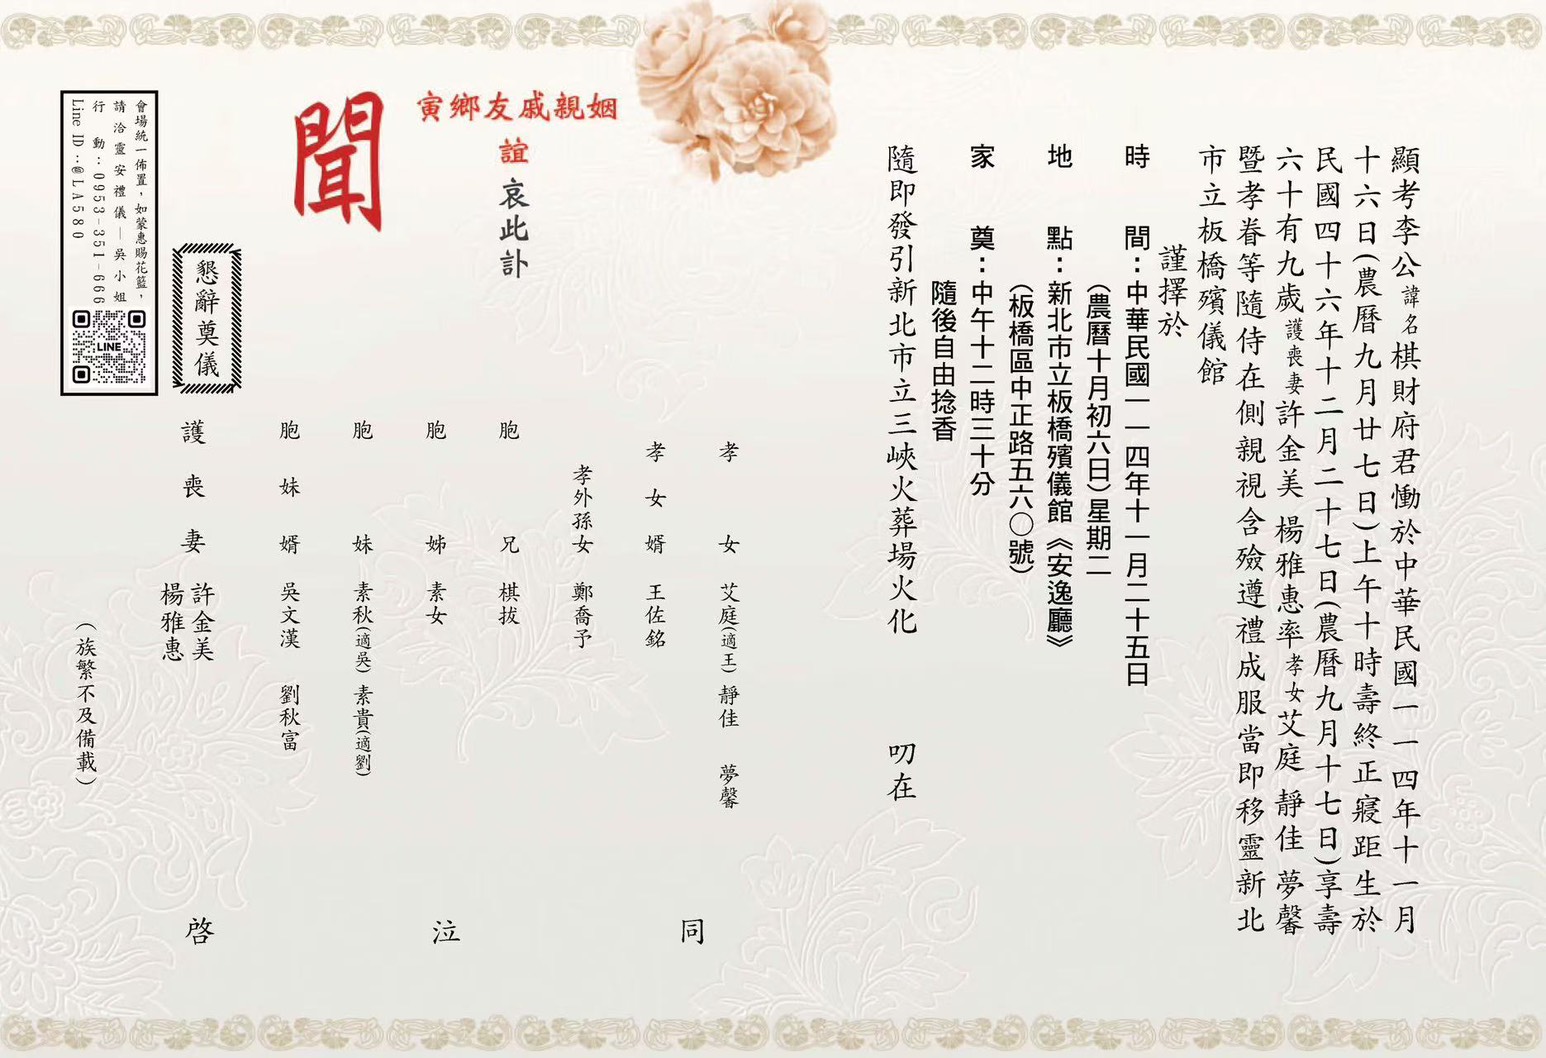 顯考李公諱名棋財府君慟於中華民國一一四年十一月
十六日(農曆九月廿七日)上午十時壽終正寢距生於
民國四十六年十二月二十七日(農曆九月十七日)享壽
六十有九歲護喪妻許金美 楊雅惠率孝女艾庭 靜佳 夢馨
暨孝眷等隨侍在側親視含殮遵禮成服當即移靈新北
市立板橋殯儀館
謹擇於
時間:中華民國一一四年十一月二十五日
(農曆十月初六日)星期二
地點:新北市立板橋殯儀館《安逸廳》
(板橋區中正路五六〇號)
家奠:中午十二時三十分
隨後自由捻香
隨即發引新北市立三峽火葬場火化 叨在
姻親戚友鄉寅
誼哀此訃
聞
孝女 艾庭(適王) 靜佳 夢馨
孝女婿 王佐銘
孝外孫女 鄭喬予
胞兄 棋拔
胞姊 素女
胞妹 素秋(適吳) 素貴(適劉)
胞妹婿 吳文漢 劉秋富
護喪妻 許金美
楊雅惠
同泣啓
(族繁不及備載)
懇辭奠儀
會場統一佈置,如蒙惠賜花籃,
請洽靈安禮儀—吳小姐
行動:0953-351-666
Line ID:@LA580
LINE